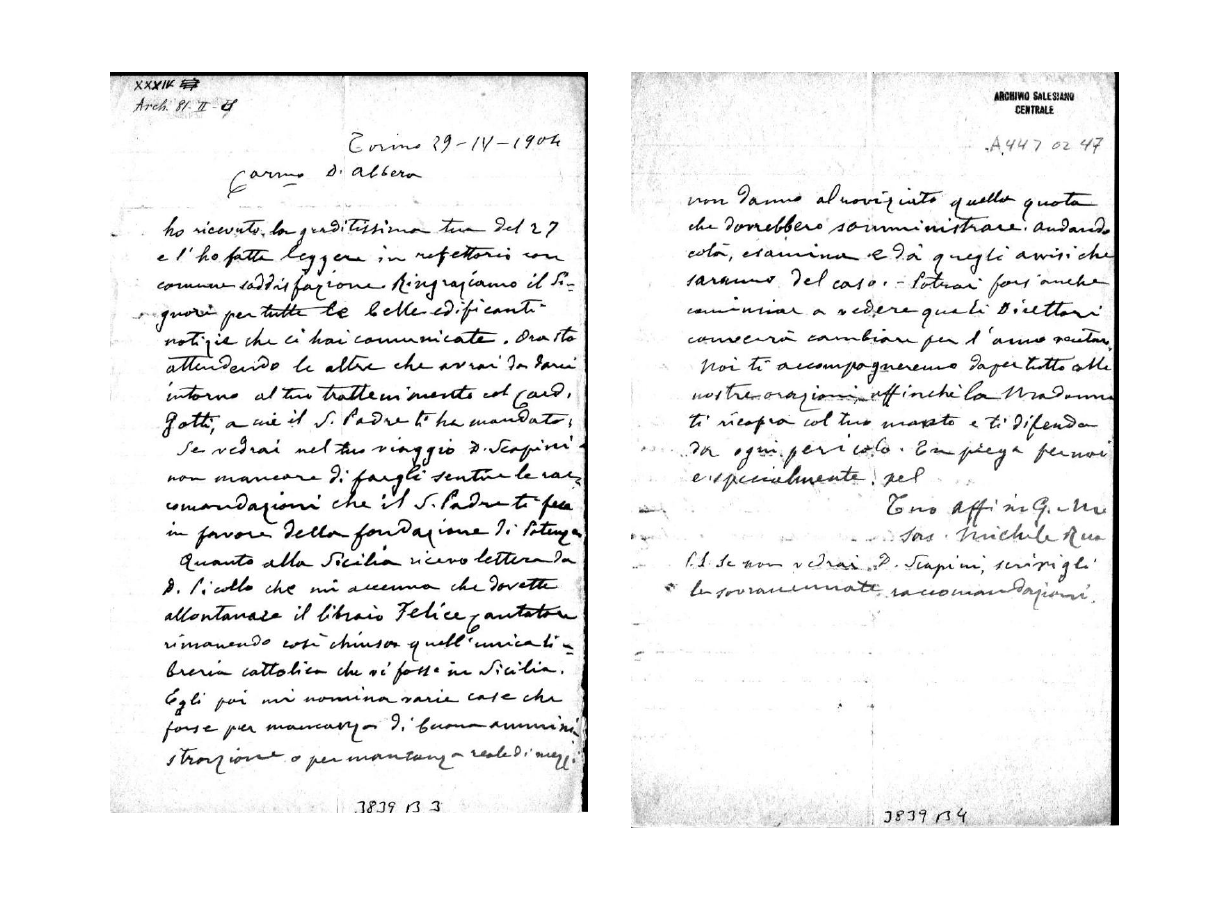 XXXIV
Arch. 81. II -
Torino 29-IV-1904
Carmo D. Albera
ho ricevuto la graditissima tua del 27
e l'ho fatta leggere in refettorio con
comune soddisfazione. Ringraziamo il Si=
gnore per tutte le belle edificanti
notizie che ci hai comunicate. Ora sto
attendendo le altre che avrai da darci
intorno al tuo trattenimento col Card.
Gotti, a cui il S. Padre ti ha mandato.
Se vedrai nel tuo viaggio D. Scapini
non mancare di fargli sentire le rac=
comandazioni che il S. Padre ti fece
in favore della fondazione di Potenza
Quanto alla Sicilia ricevo lettera da
D. Picollo che mi accenna che dovette
allontanare il libraio Felice Cantatore
rimanendo così chiusa quell'unica li=
breria cattolica che vi fosse in Sicilia.
Egli poi mi nomina varie case che
forse per mancanza di buona ammini
strazione o per mancanza reale di mezzi
3839 B 3
ARCHIVIO SALESIANO
CENTRALE
A447 02 47
non danno al noviziato quella quota
che dovrebbero somministrare. Andando
colà, esamina e dà quegli avvisi che
saranno del caso. - Potrai fors'anche
cominciar a vedere quali Direttori
converrà cambiare per l'anno venturo.
Noi ti accompagneremo dapertutto colle
nostre orazioni, affinchè la Madonna
ti ricopra col suo manto e ti difenda
da ogni pericolo. Tu prega per noi
e specialmente pel
Tuo aff. in G. e M.
Sac. Michele Rua
P.S. Se non vedrai D. Scapini, scrivigli
le sovraccennate raccomandazioni.
3839 B 4